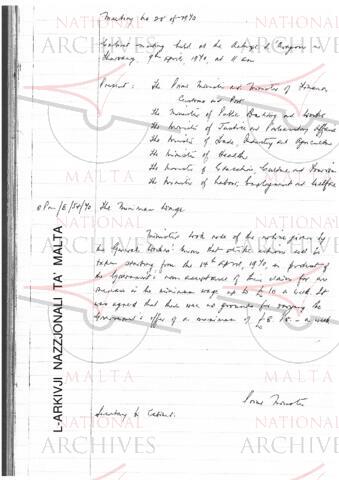 Meeting No 28 of 1970
Cabinet meeting held at the Auberge d'Aragon on
Thursday, 9th April, 1970, at 11 am
Present: The Prime Minister and Minister of Finance
Customs and Port
The Minister of Public Building and Works
The Minister of Justice and Parliamentary Affairs
The Minister of Trade, Industry and Agriculture
The Minister of Health
The Minister of Education, Culture and Tourism
The Minister of Labour, Employment and Welfare
The Minimum Wage
Ministers took note of the notice given by
the General Workers' Union that strike action will be
taken starting from the 14th April, 1970, in protest of
the Government's non acceptance of their claims for an
increase in the minimum wage up to £10 a week. It
was agreed that there were no grounds for varying the
Government's offer of a minimum of a week
Prime Minister
Secretary to Cabinet
L-ARKIVJI NAZZJONALI TA' MALTA
NATIONAL
ARCHIVES
MALTA